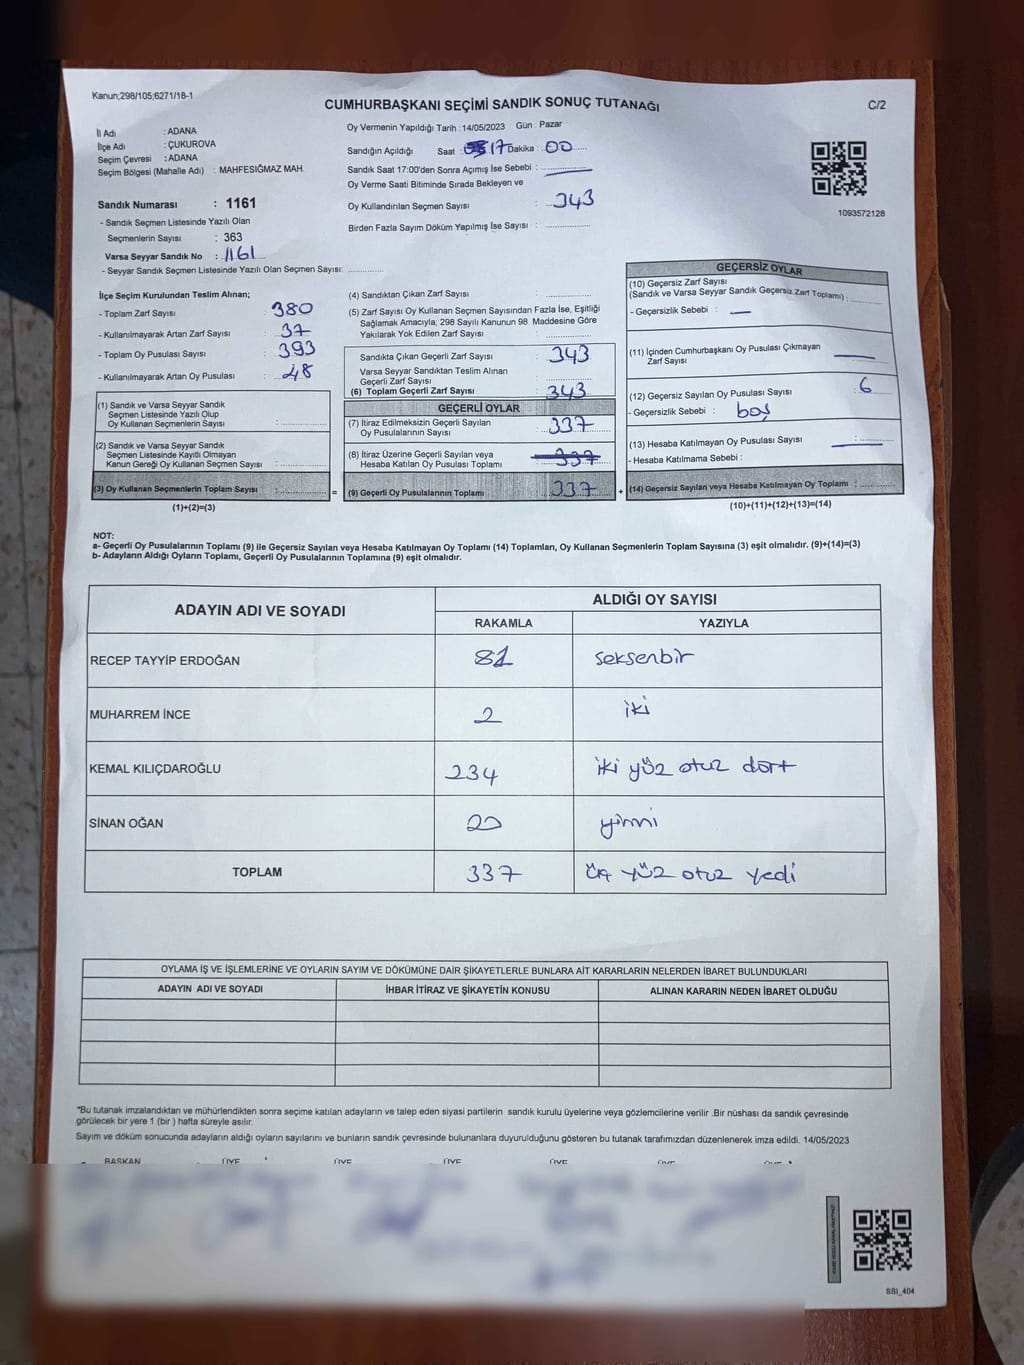 Kanun;298/105;6271/18-1
CUMHURBAŞKANI SEÇİMİ SANDIK SONUÇ TUTANAĞI
C/2
İl Adı : ADANA
İlçe Adı : ÇUKUROVA
Seçim Çevresi : ADANA
Seçim Bölgesi (Mahalle Adı) : MAHFESIĞMAZ MAH.
Sandık Numarası : 1161
- Sandık Seçmen Listesinde Yazılı Olan
Seçmenlerin Sayısı : 363
Varsa Seyyar Sandık No : 1161
- Seyyar Sandık Seçmen Listesinde Yazılı Olan Seçmen Sayısı:
Oy Vermenin Yapıldığı Tarih :14/05/2023 Gün : Pazar
Sandığın Açıldığı Saat : 17 Dakika : 00
Sandık Saat 17:00'den Sonra Açımış İse Sebebi :
Oy Verme Saati Bitiminde Sırada Bekleyen ve
Oy Kullandırılan Seçmen Sayısı : 343
Birden Fazla Sayım Döküm Yapılmış İse Sayısı :
1093572128
İlçe Seçim Kurulundan Teslim Alınan;
- Toplam Zarf Sayısı : 380
- Kullanılmayarak Artan Zarf Sayısı : 37
- Toplam Oy Pusulası Sayısı : 393
- Kullanılmayarak Artan Oy Pusulası : 48
(1) Sandık ve Varsa Seyyar Sandık
Seçmen Listesinde Yazılı Olup
Oy Kullanan Seçmenlerin Sayısı :
(2) Sandık ve Varsa Seyyar Sandık
Seçmen Listesinde Kayıtlı Olmayan
Kanun Gereği Oy Kullanan Seçmen Sayısı :
(3) Oy Kullanan Seçmenlerin Toplam Sayısı :
(1)+(2)=(3)
(4) Sandıktan Çıkan Zarf Sayısı :
(5) Zarf Sayısı Oy Kullanan Seçmen Sayısından Fazla İse, Eşitliği
Sağlamak Amacıyla; 298 Sayılı Kanunun 98. Maddesine Göre
Yakılarak Yok Edilen Zarf Sayısı :
Sandıkta Çıkan Geçerli Zarf Sayısı : 343
Varsa Seyyar Sandıktan Teslim Alınan
Geçerli Zarf Sayısı :
(6) Toplam Geçerli Zarf Sayısı : 343
GEÇERLİ OYLAR
(7) İtiraz Edilmeksizin Geçerli Sayılan
Oy Pusulalarının Sayısı : 337
(8) İtiraz Üzerine Geçerli Sayılan veya
Hesaba Katılan Oy Pusulası Toplamı : 337
= (9) Geçerli Oy Pusulalarının Toplamı : 337 +
GEÇERSİZ OYLAR
(10) Geçersiz Zarf Sayısı
(Sandık ve Varsa Seyyar Sandık Geçersiz Zarf Toplamı) :
- Geçersizlik Sebebi :
(11) İçinden Cumhurbaşkanı Oy Pusulası Çıkmayan
Zarf Sayısı
(12) Geçersiz Sayılan Oy Pusulası Sayısı : 6
- Geçersizlik Sebebi : boş
(13) Hesaba Katılmayan Oy Pusulası Sayısı :
- Hesaba Katılmama Sebebi :
(14) Geçersiz Sayılan veya Hesaba Katılmayan Oy Toplamı :
(10)+(11)+(12)+(13)=(14)
NOT:
a- Geçerli Oy Pusulalarının Toplamı (9) ile Geçersiz Sayılan veya Hesaba Katılmayan Oy Toplamı (14) Toplamları, Oy Kullanan Seçmenlerin Toplam Sayısına (3) eşit olmalıdır. (9)+(14)=(3)
b- Adayların Aldığı Oyların Toplamı, Geçerli Oy Pusulalarının Toplamına (9) eşit olmalıdır.
ADAYIN ADI VE SOYADI ALDIĞI OY SAYISI
RAKAMLA YAZIYLA
RECEP TAYYİP ERDOĞAN 81 seksenbir
MUHARREM İNCE 2 iki
KEMAL KILIÇDAROĞLU 234 iki yüz otuz dört
SİNAN OĞAN 20 yirmi
TOPLAM 337 üç yüz otuz yedi
OYLAMA İŞ VE İŞLEMLERİNE VE OYLARIN SAYIM VE DÖKÜMÜNE DAİR ŞİKAYETLERLE BUNLARA AİT KARARLARIN NELERDEN İBARET BULUNDUKLARI
ADAYIN ADI VE SOYADI İHBAR İTİRAZ VE ŞİKAYETİN KONUSU ALINAN KARARIN NEDEN İBARET OLDUĞU
*Bu tutanak imzalandıktan ve mühürlendikten sonra seçime katılan adayların ve talep eden siyasi partilerin sandık kurulu üyelerine veya gözlemcilerine verilir .Bir nüshası da sandık çevresinde
görülecek bir yere 1 (bir ) hafta süreyle asılır.
Sayım ve döküm sonucunda adayların aldığı oyların sayılarını ve bunların sandık çevresinde bulunanlara duyurulduğunu gösteren bu tutanak tarafımızdan düzenlenerek imza edildi. 14/05/2023
BAŞKAN ÜYE ÜYE ÜYE ÜYE ÜYE ÜYE
SSI_404